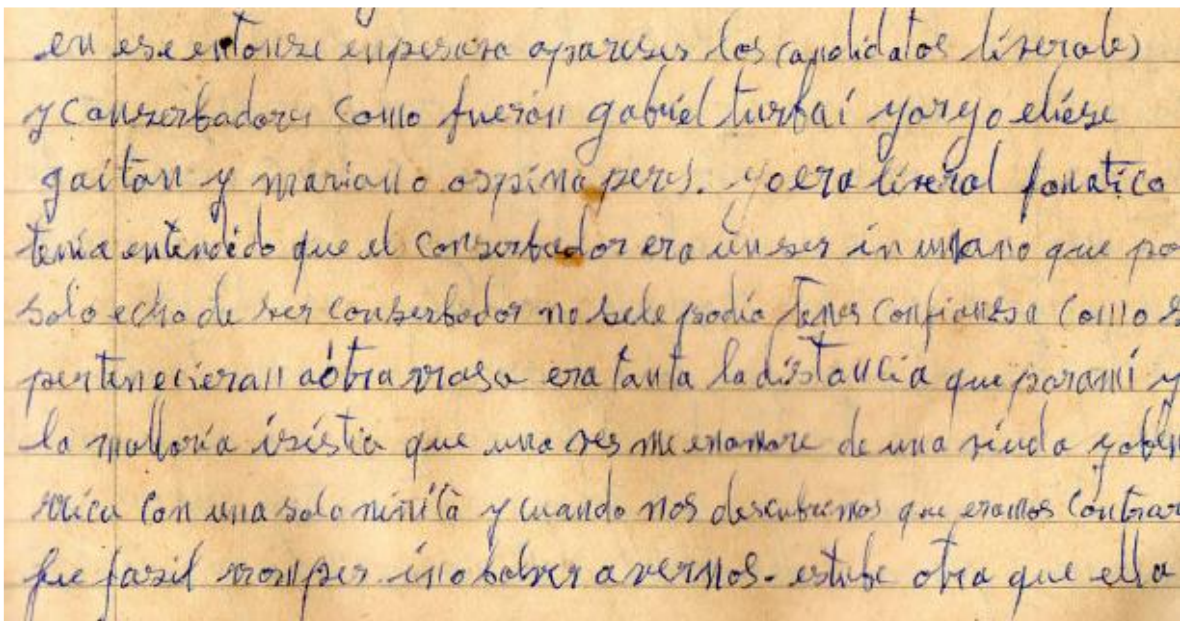 en ese entonse enpesaron apareser los candidatos liserales
y Conserbadores Como fuerón gabriel turbai y orgo eliese
gaitan y mariano ospina peres. yo era liseral fonatico
tenia entendido que el Conserbador era un ser in umano que po
solo echo de ser conserbador no sele podia tener confiansa Como s
pertenecieran aótra rrasa era tanta la distancia que parami y
la malloria isistia que una ves me enamore de una viuda y
rrica con una sola niñita y cuando nos descubrimos que eramos contrar
fue fasil rromper ino bolver avernos. estube otra que ella